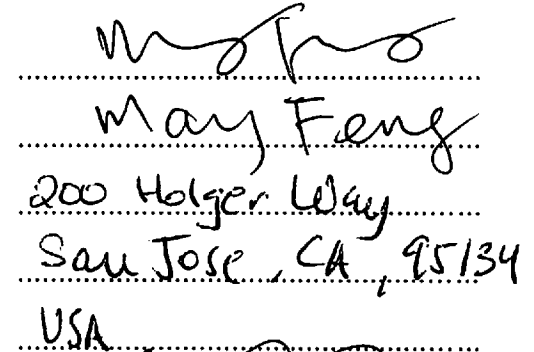 May Feng
200 Holger Way
San Jose, CA, 95134
USA